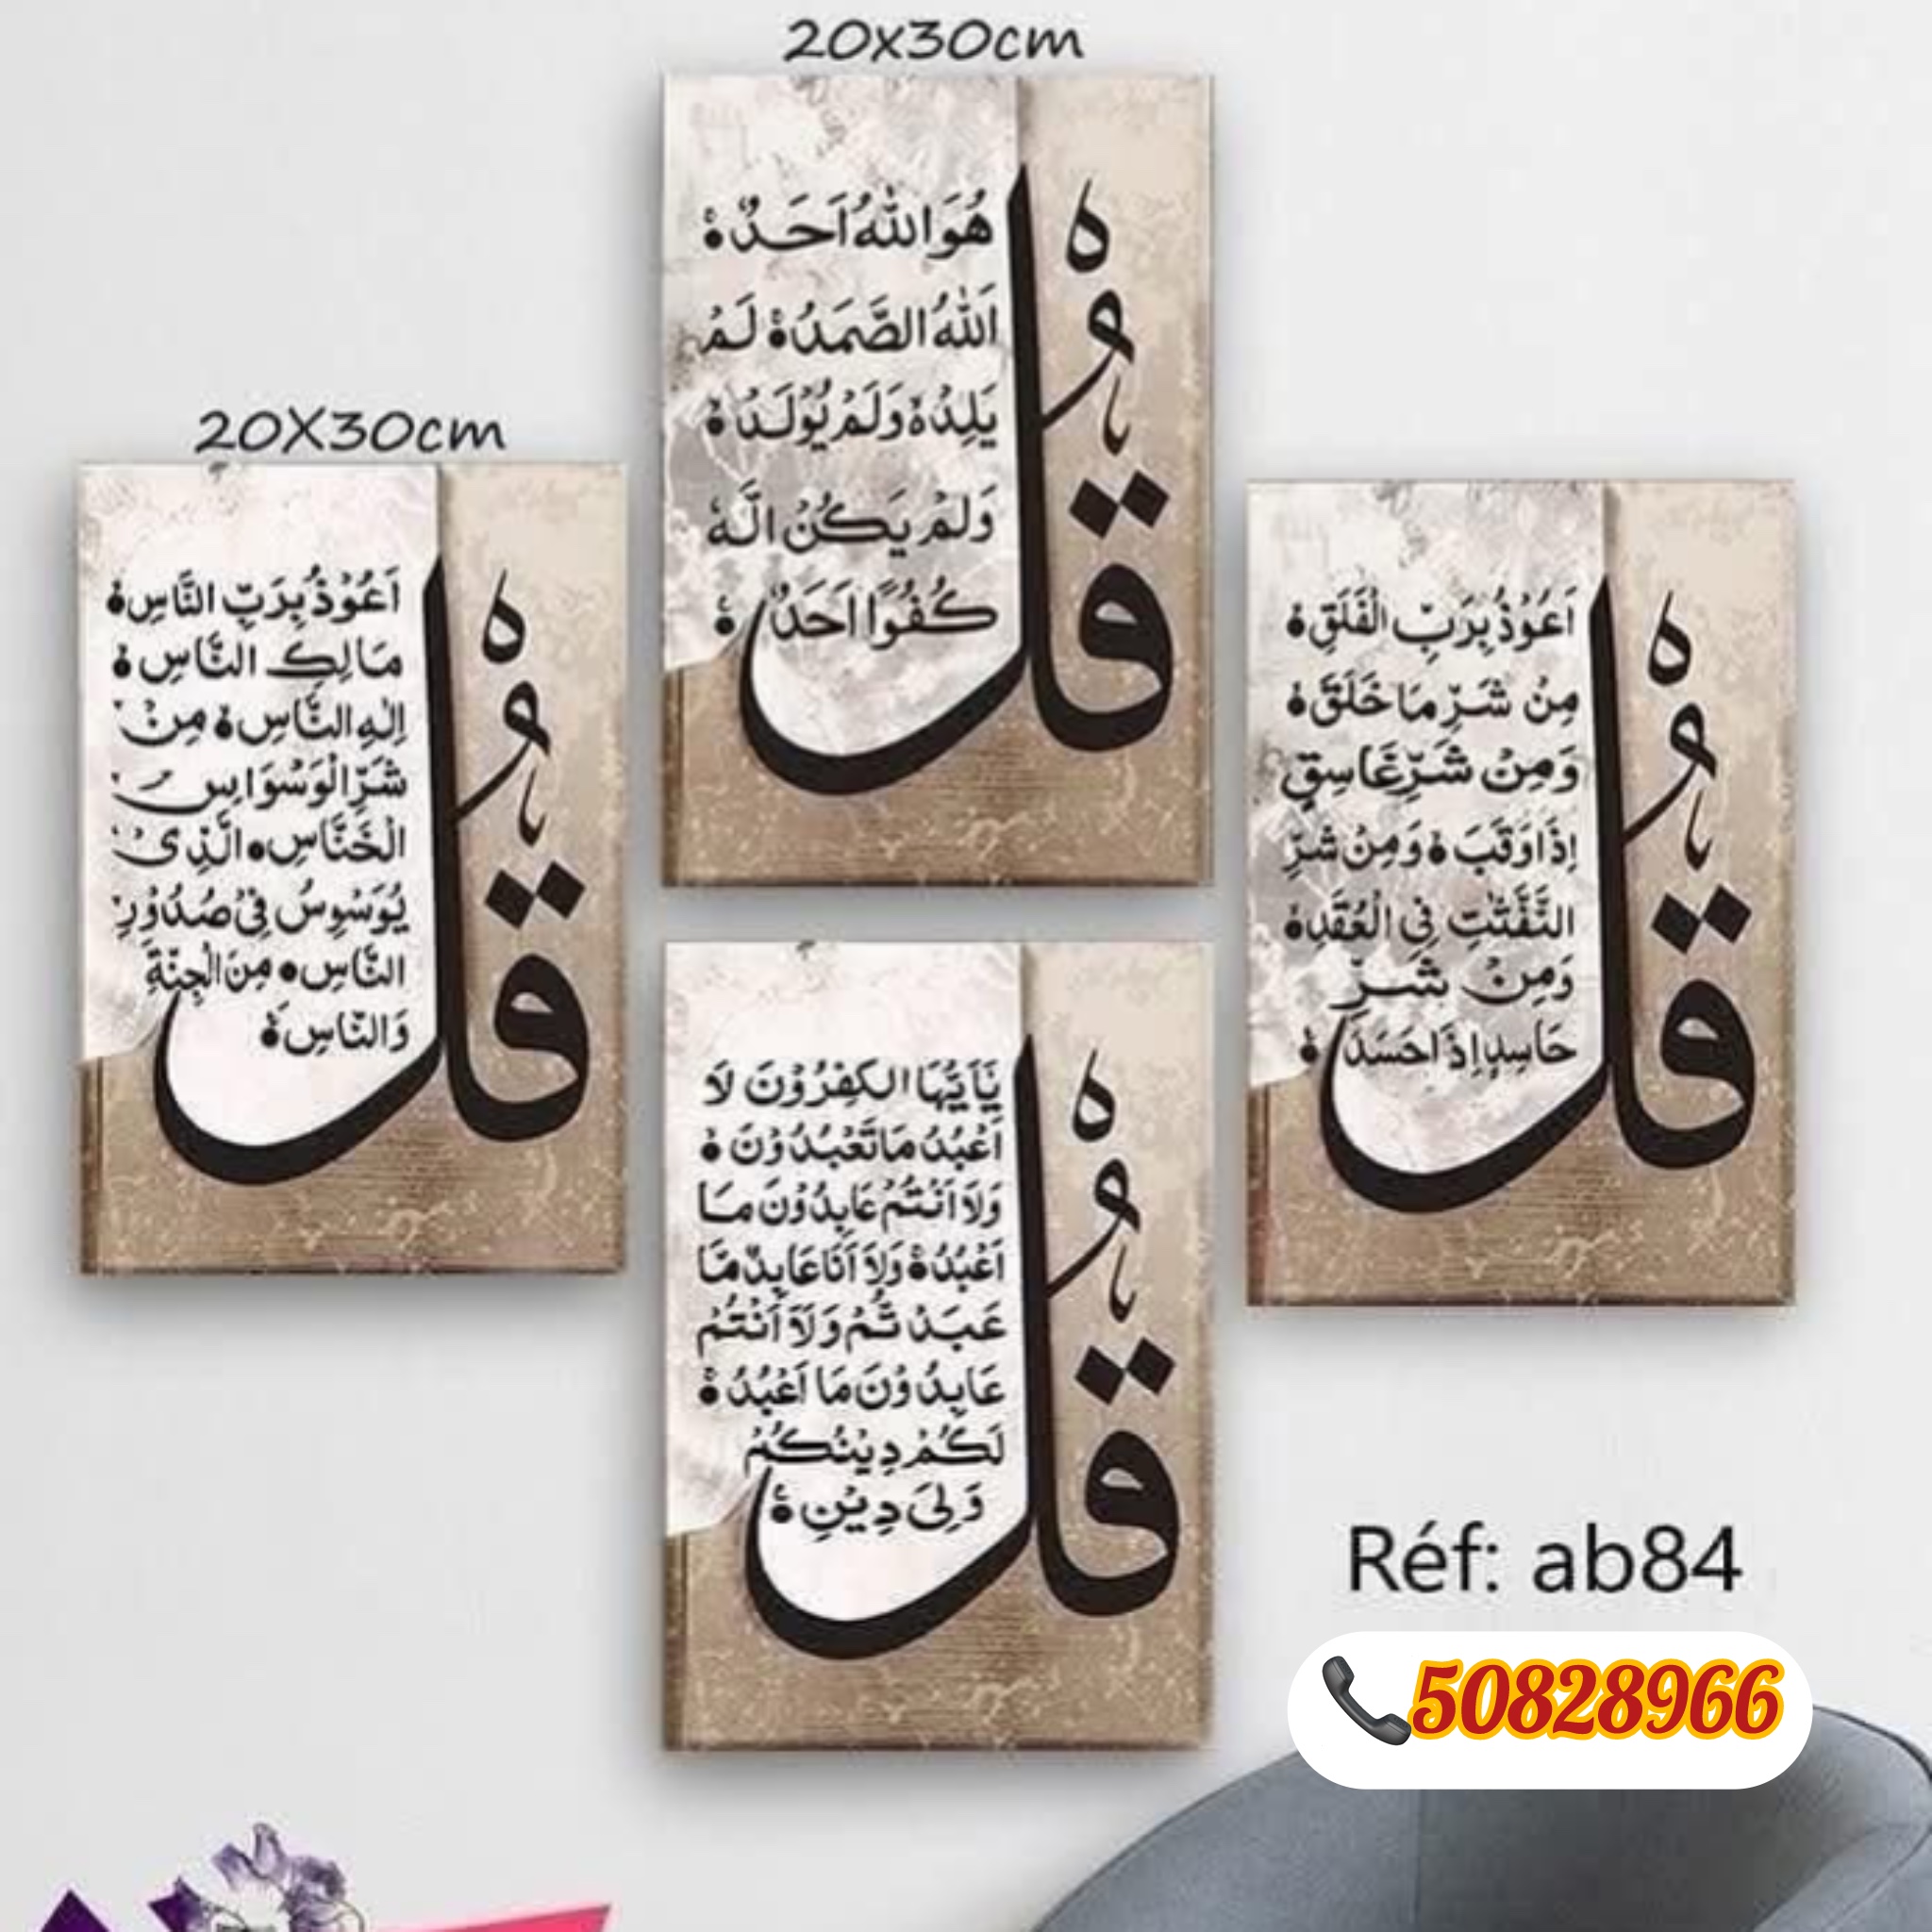 20x30cm
قُلْ
هُوَ اللّٰهُ اَحَدٌ
اَللّٰهُ الصَّمَدُ لَمْ
يَلِدْ وَلَمْ يُوْلَدْ
وَلَمْ يَكُنْ الَّهٗ
كُفُوًا اَحَدٌ
20X30cm
قُلْ
اَعُوْذُ بِرَبِّ النَّاسِ
مَالِكِ النَّاسِ
اِلٰهِ النَّاسِ مِنْ
شَرِّ الْوَسْوَاسِ
الْخَنَّاسِ الَّذِىْ
يُوَسْوِسُ فِىْ صُدُوْرِ
النَّاسِ مِنَ الْجِنَّةِ
وَالنَّاسِ
قُلْ
اَعُوْذُ بِرَبِّ الْفَلَقِ
مِنْ شَرِّ مَا خَلَقَ
وَمِنْ شَرِّ غَاسِقٍ
اِذَا وَقَبَ وَمِنْ شَرِّ
النَّفّٰثٰتِ فِى الْعُقَدِ
وَمِنْ شَرِّ
حَاسِدٍ اِذَا حَسَدَ
قُلْ
يٰٓاَيُّهَا الْكٰفِرُوْنَ لَا
اَعْبُدُ مَا تَعْبُدُوْنَ
وَلَا اَنْتُمْ عَابِدُوْنَ مَا
اَعْبُدُ وَلَا اَنَا عَابِدٌ مَّا
عَبَدْتُّمْ وَلَا اَنْتُمْ
عَابِدُوْنَ مَا اَعْبُدُ
لَكُمْ دِيْنُكُمْ
وَلِىَ دِيْنِ
Réf: ab84
50828966